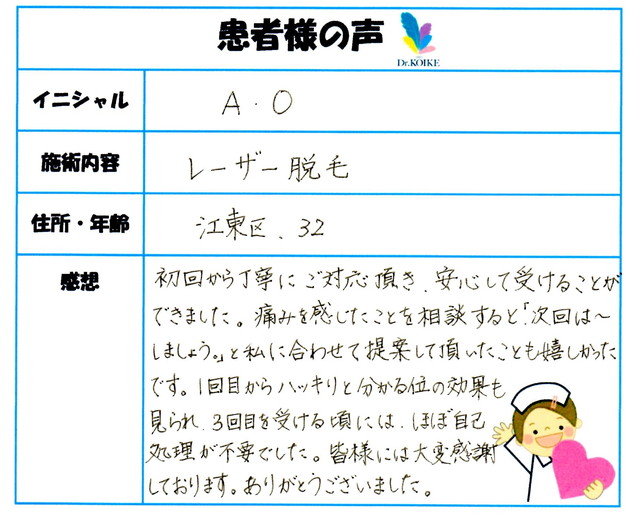 患者様の声
Dr.KOIKE
イニシャル
A.O
施術内容
レーザー脱毛
住所・年齢
江東区、32
感想
初回から丁寧にご対応頂き、安心して受けることが
できました。痛みを感じたことを相談すると「次回は〜
しましょう。」と私に合わせて提案して頂いたことも嬉しかった
です。1回目からハッキリと分かる位の効果も
見られ、3回目を受ける頃には、ほぼ自己
処理が不要でした。皆様には大変感謝
しております。ありがとうございました。